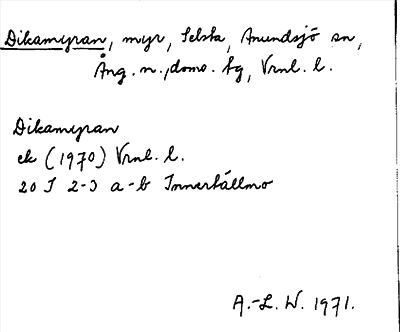 Dikamyran, myr, Selsta, Anundsjö sn,
Ång. n., doms. tg, Vrnl. l.
Dikamyran
ek (1970) Vrnl. l.
20 I 2-3 a-b Innertällmo
A.-L. W. 1971.